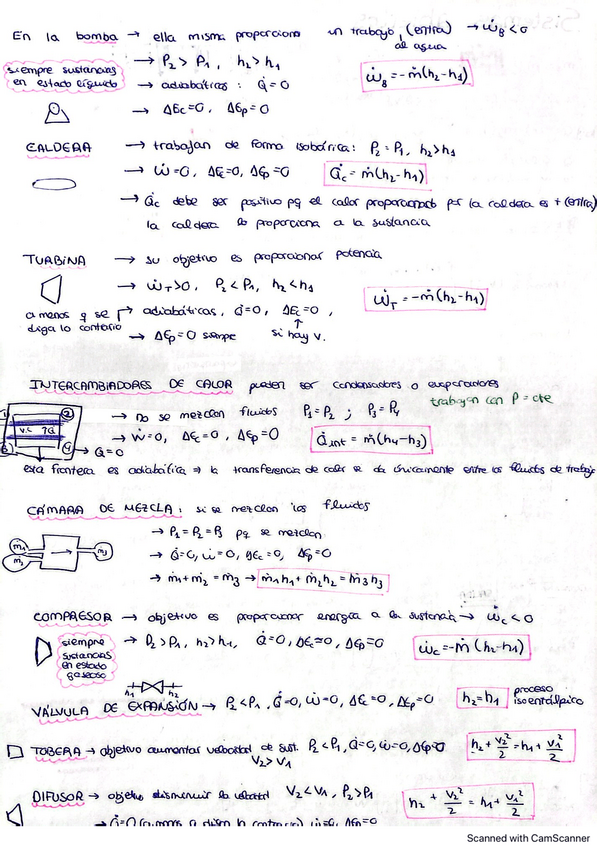 En la bomba → ella misma proporciona un trabajo (entra) al agua → ẇB < 0
siempre sustancias en estado líquido
→ P2 > P1, h2 > h1
→ adiabáticas: Q̇ = 0
ẇB = -ṁ(h2-h1)
→ ΔEc = 0, ΔEp = 0
CALDERA → trabajan de forma isobárica: P2 = P1, h2 > h1
→ Ẇ = 0, ΔEc = 0, ΔEp = 0
Q̇c = ṁ(h2-h1)
→ Q̇c debe ser positivo pq el calor proporcionado por la caldera es + (entra)
la caldera lo proporciona a la sustancia
TURBINA → su objetivo es proporcionar potencia
→ ẆT > 0, P2 < P1, h2 < h1
ẆT = -ṁ(h2-h1)
a menos q se diga lo contario
→ adiabáticas, Q̇ = 0, ΔEc = 0,
→ ΔEp = 0 siempre
si hay v.
INTERCAMBIADORES DE CALOR pueden ser condensadores o evaporadores
trabajan con P = cte
1 2
V.C
3 4
→ no se mezclan fluidos P1 = P2 ; P3 = P4
→ Ẇ = 0, ΔEc = 0, ΔEp = 0
Q̇int = ṁ(h4-h3)
→ Q = 0
esta frontera es adiabática ⇒ la transferencia de calor se da únicamente entre los fluidos de trabajo
CÁMARA DE MEZCLA: si se mezclan los fluidos
ṁ1
ṁ2
ṁ3
→ P1 = P2 = P3 pq se mezclan
→ Q̇ = 0, ẇ = 0, ΔEc = 0, ΔEp = 0
→ ṁ1 + ṁ2 = ṁ3 → ṁ1h1 + ṁ2h2 = ṁ3h3
COMPRESOR → objetivo es proporcionar energía a la sustancia → ẇc < 0
siempre sustancias en estado gaseoso
→ P2 > P1, h2 > h1, Q̇ = 0, ΔEc ≈ 0, ΔEp = 0
ẇc = -ṁ(h2-h1)
h1 h2
VÁLVULA DE EXPANSIÓN → P2 < P1, Q̇ = 0, ẇ = 0, ΔEc = 0, ΔEp = 0
h2 = h1
proceso isoentálpico
TOBERA → objetivo aumentar velocidad de sust. P2 < P1, Q̇ = 0, ẇ = 0, ΔEp = 0
V2 > V1
h2 + V2²/2 = h1 + V1²/2
DIFUSOR → objetivo disminuir la velocidad V2 < V1, P2 > P1
h2 + V2²/2 = h1 + V1²/2
→ Q̇ = 0 (a menos q digan lo contrario) ẇ = 0, ΔEp = 0
Scanned with CamScanner